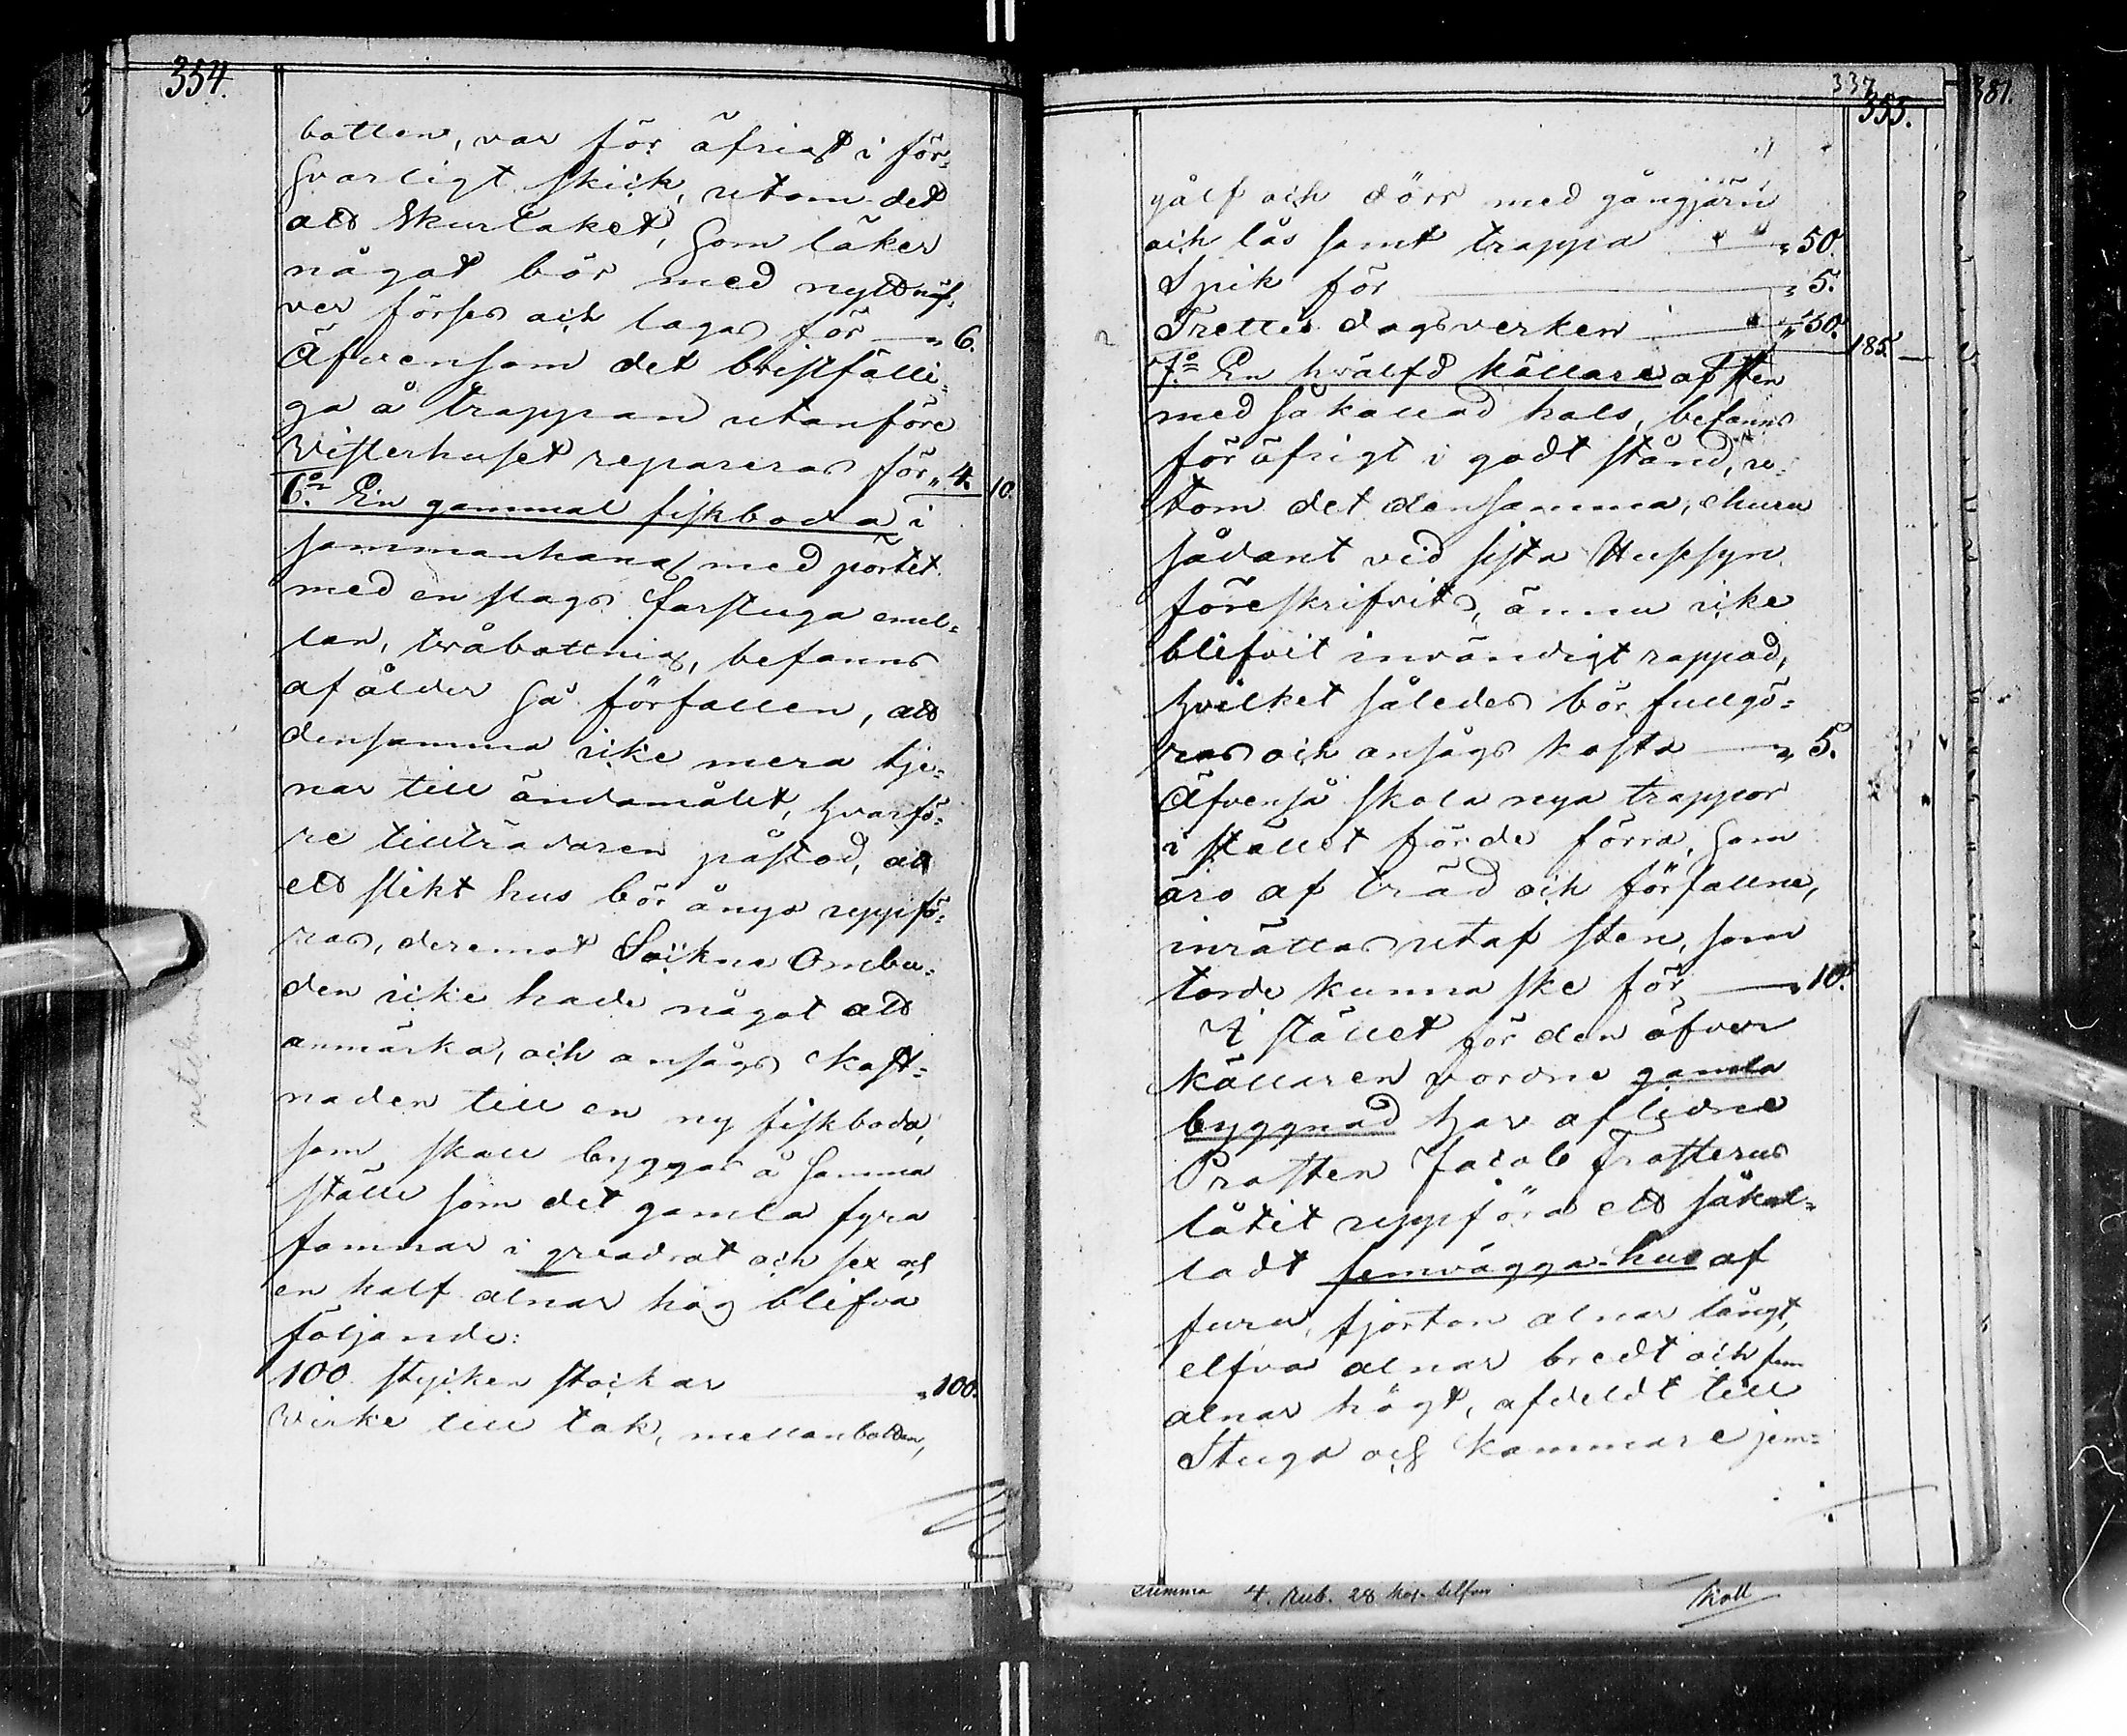 354.
botten, var för öfrigt i för=
svarligt skick, utom det
att Skurtaket, som läker
något bör med nytt näf=
ver förses och lagas för — „ 6.
Äfvensom det bristfälli=
ga å trappan utanföre
Visterhuset repareras för „ 4. 10.
6:o En gammal fiskboda i
sammanhang med pörtet
med en slags farstuga emel=
lan, tvåbottnig, befanns
af ålder så förfallen, att
densamma icke mera tje=
nar till ändamålet, hvarfö=
re tillträdaren påstod, att
ett slikt hus bör ånyo uppfö=
ras, deremot Sockne Ombu=
den icke hade något att
anmärka, och ansågs kost=
naden till en ny fiskboda,
som skall byggas å samma
ställe som det gamla fyra
famnar i quadrat och sex och
en half alnar hög blifva
följande:
100 stycken stockar „ 100.
Virke till tak, mellanbotten,
337
355.
381.
golf och dörr med gångjärn
och lås samt trappa „ 50.
Spik för „ 5.
Trettio dagsverken „ 30. 185. —
7:o En hvälfd källare af sten
med så kallad hals, befanns
för öfrigt i godt stånd, u=
tom det densamma, ehuru
sådant vid sista Hussyn
föreskrifvits, ännu icke
blifvit invändigt rappad,
hvilket således bör fullgö=
ras och ansågs kosta — „ 5.
Äfvenså skola nya trappor
i stället för de förra, som
äro af träd och förfallne,
inrättas utaf sten, som
torde kunna ske för — „ 10.
I stället för den öfver
källaren vordne gamla
byggnad har aflidne
Prosten Jacob Frosterus
låtit uppföra ett såkal=
ladt femvägga-hus af
furu, fjorton alnar långt,
elfva alnar bredt och fem
alnar högt, afdeldt till
Stuga och Kammare jem=
summa 4. Rub. 28 kop. Silfver